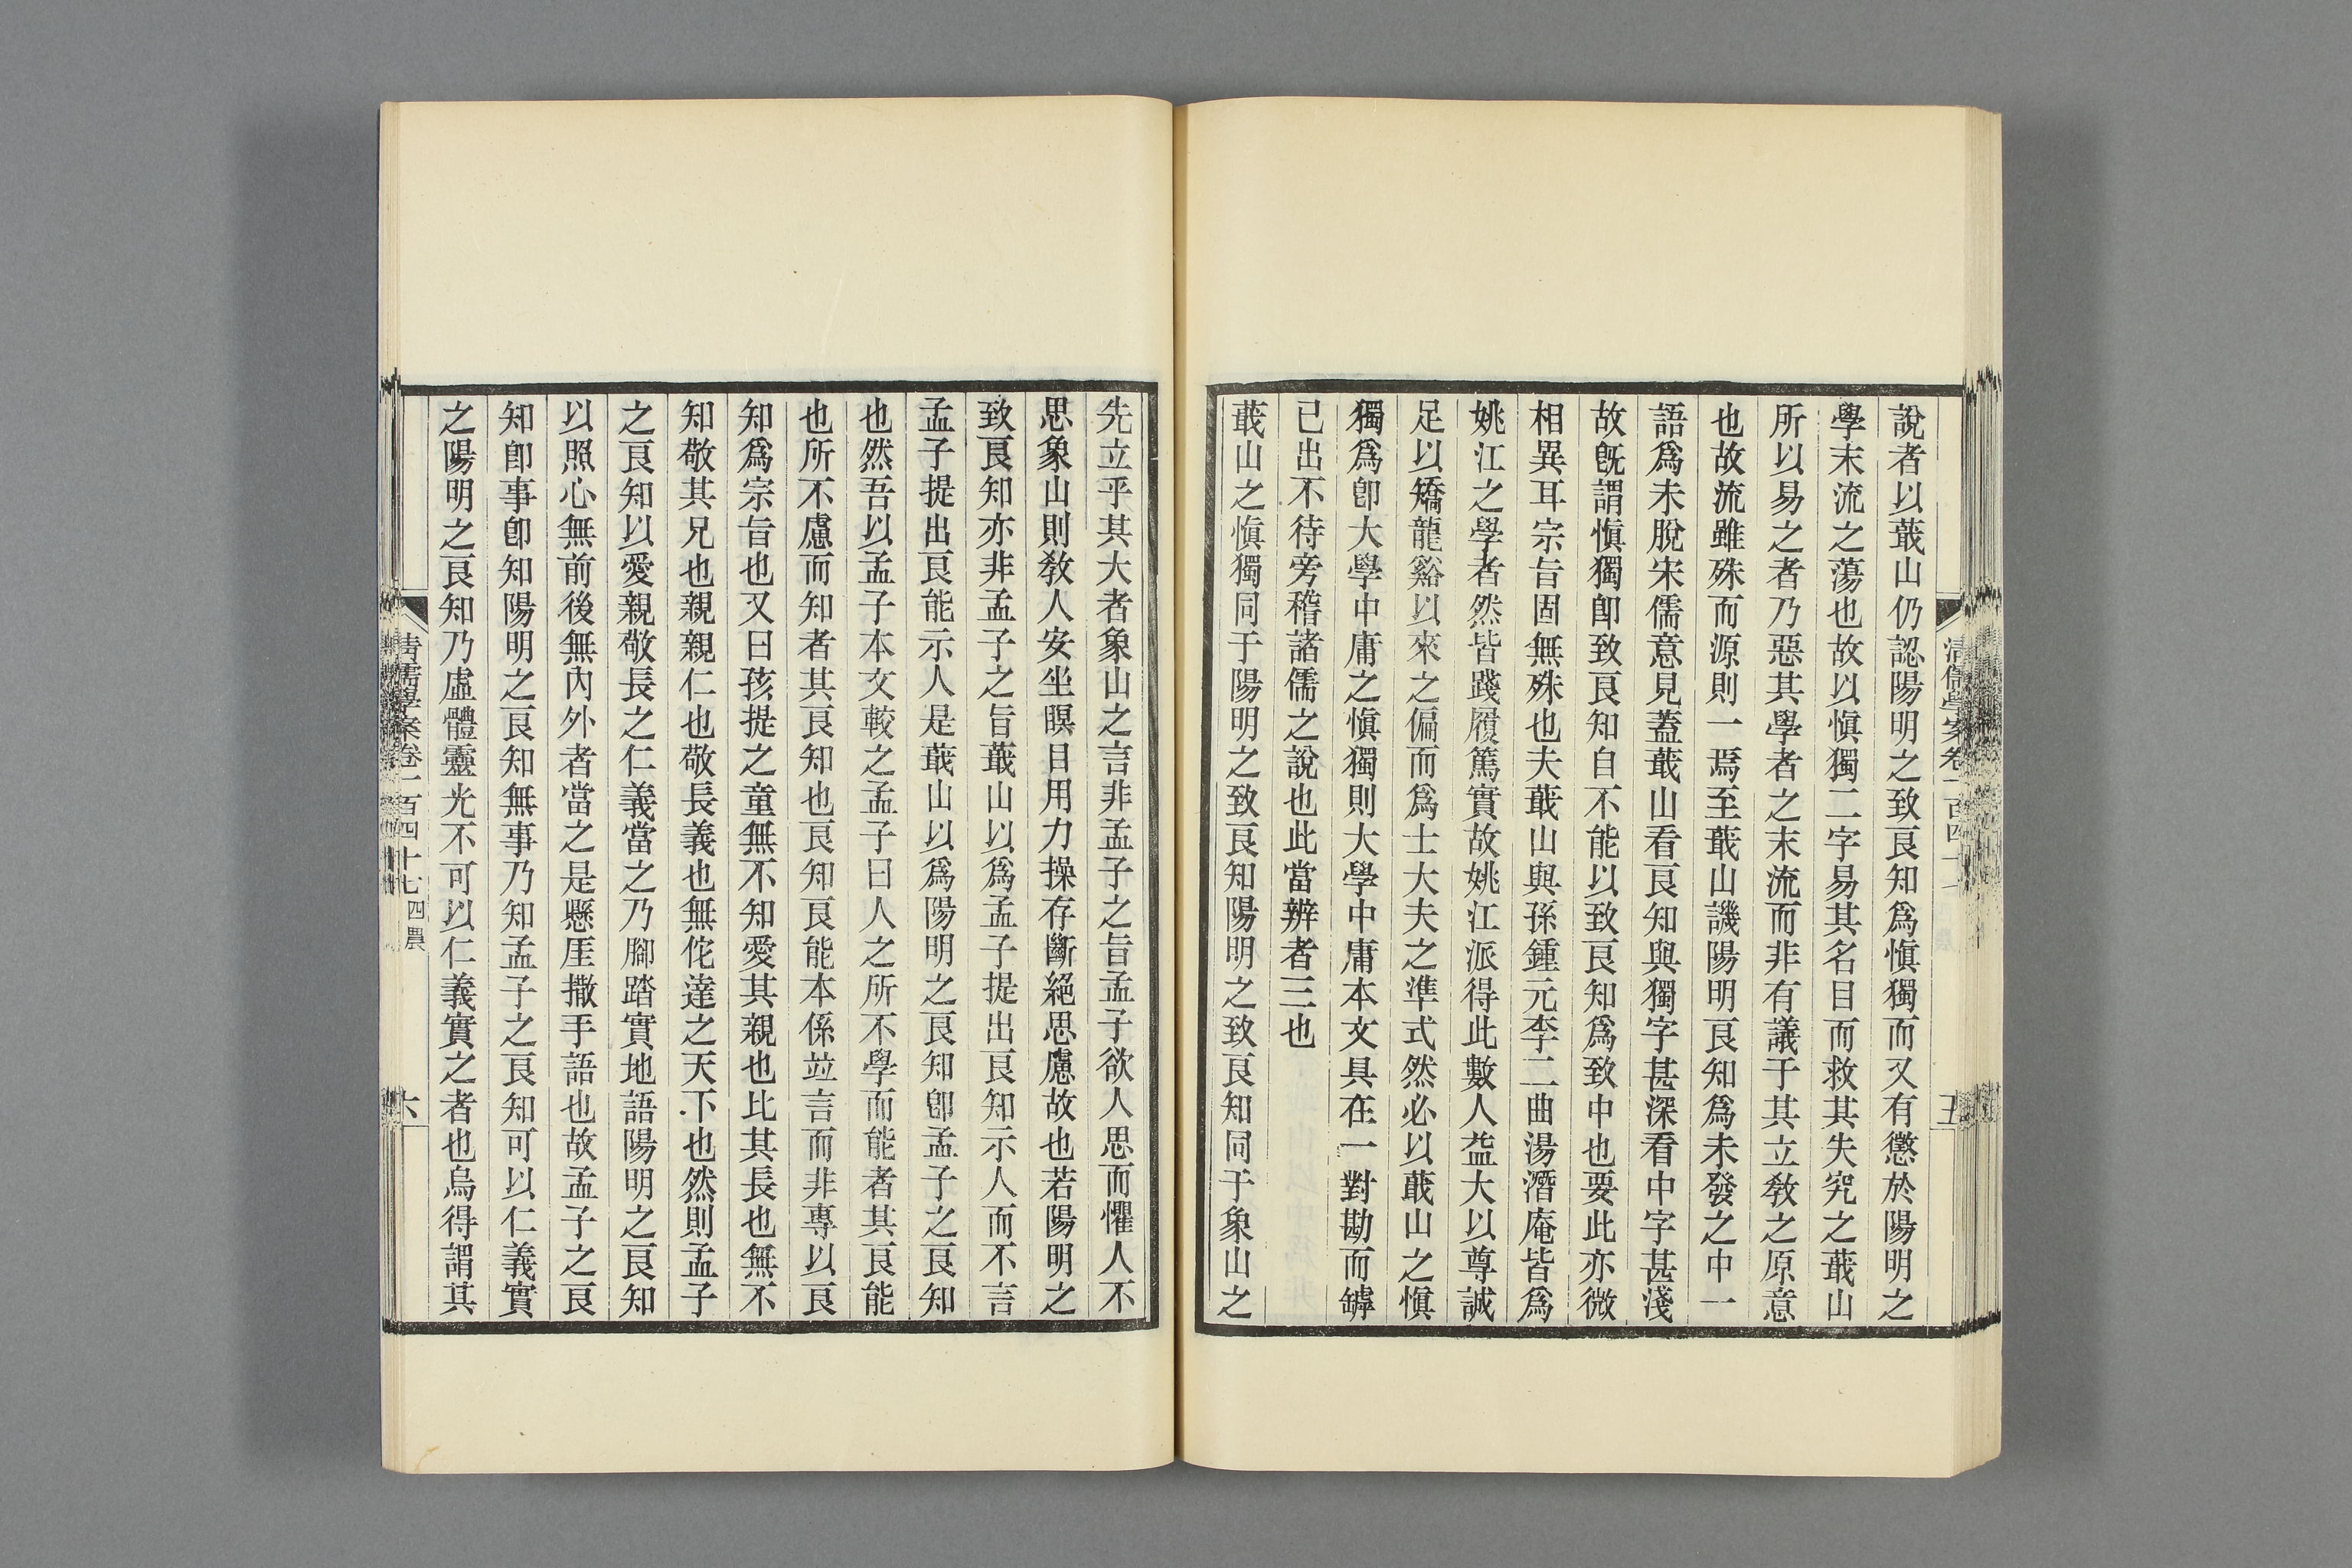 說者以蕺山仍認陽明之致良知爲愼獨而又有懲於陽明之
學末流之蕩也故以愼獨二字易其名目而救其失究之蕺山
所以易之者乃惡其學者之末流而非有議于其立敎之原意
也故流雖殊而源則一焉至蕺山譏陽明良知爲未發之中一
語爲未脫宋儒意見蓋蕺山看良知與獨字甚深看中字甚淺
故旣謂愼獨卽致良知自不能以致良知爲致中也要此亦微
相異耳宗旨固無殊也夫蕺山與孫鍾元李二曲湯潛庵皆爲
姚江之學者然皆踐履篤實故姚江派得此數人益大以尊誠
足以矯龍谿以來之偏而爲士大夫之準式然必以蕺山之愼
獨爲卽大學中庸之愼獨則大學中庸本文具在一對勘而罅
已出不待旁稽諸儒之說也此當辨者三也
蕺山之愼獨同于陽明之致良知陽明之致良知同于象山之
清儒學案卷一百四十
五
先立乎其大者象山之言非孟子之旨孟子欲人思而懼人不
思象山則敎人安坐瞑目用力操存斷絕思慮故也若陽明之
致良知亦非孟子之旨蕺山以爲孟子提出良知示人而不言
孟子提出良能示人是蕺山以爲陽明之良知卽孟子之良知
也然吾以孟子本文較之孟子曰人之所不學而能者其良能
也所不慮而知者其良知也良知良能本係並言而非專以良
知爲宗旨也又曰孩提之童無不知愛其親也比其長也無不
知敬其兄也親親仁也敬長義也無佗達之天下也然則孟子
之良知以愛親敬長之仁義當之乃腳踏實地語陽明之良知
以照心無前後無內外者當之是懸厓撒手語也故孟子之良
知卽事卽知陽明之良知無事乃知孟子之良知可以仁義實
之陽明之良知乃虛體靈光不可以仁義實之者也烏得謂其
清儒學案卷一百四十七 四農
六